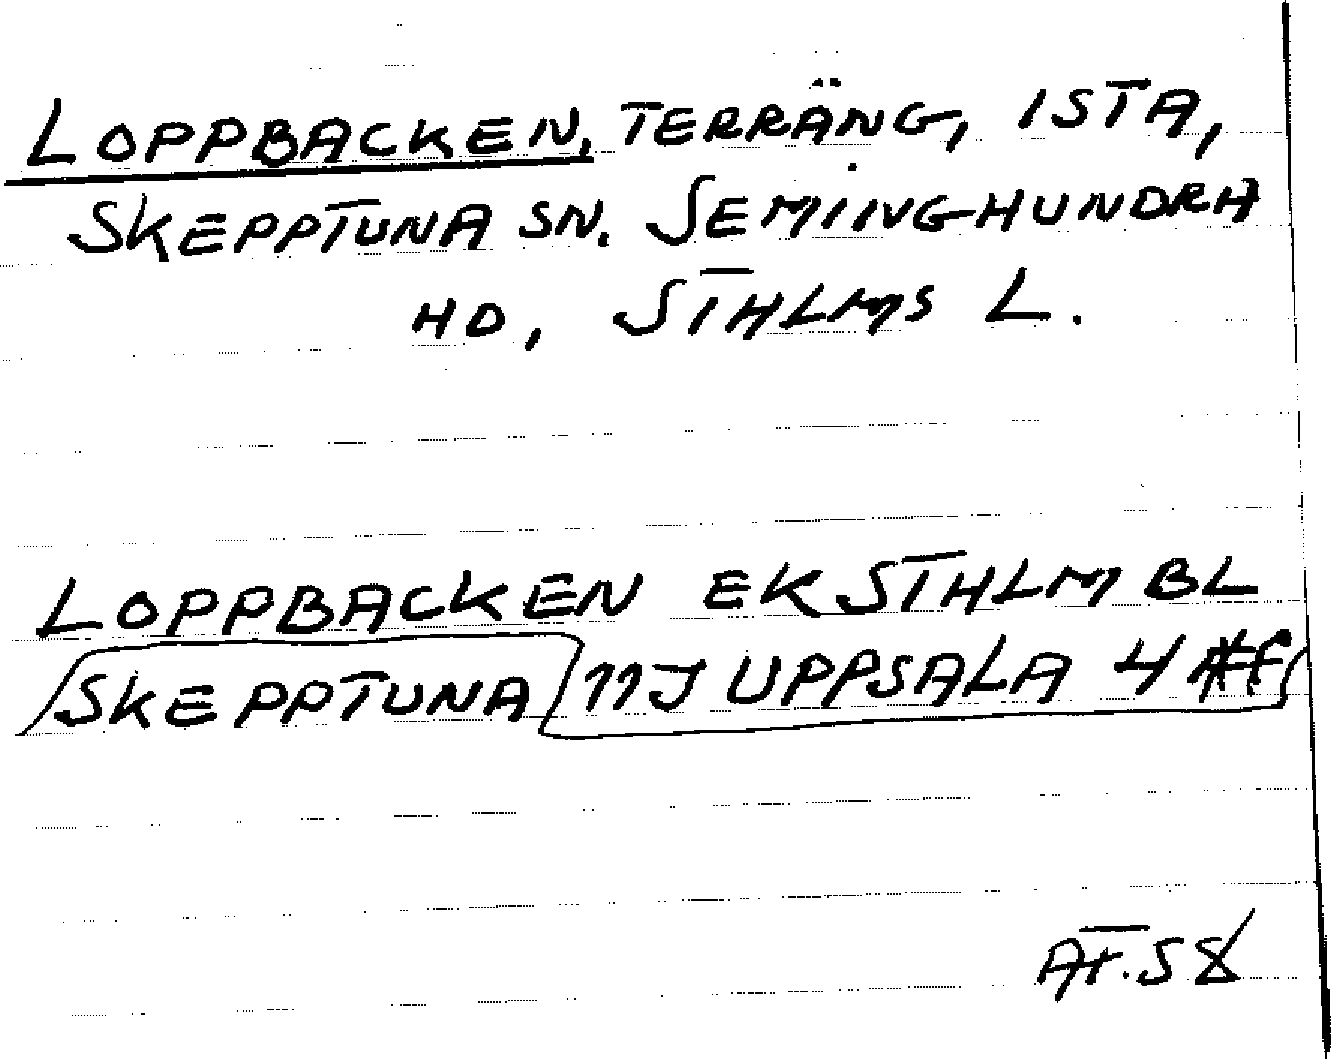 LOPPBACKEN, TERRÄNG, ISTA,
SKEPPTUNA SN. SEMINGHUNDRA
HD, STHLMS L.
LOPPBACKEN EK STHLM BL
SKEPPTUNA 11J UPPSALA 4